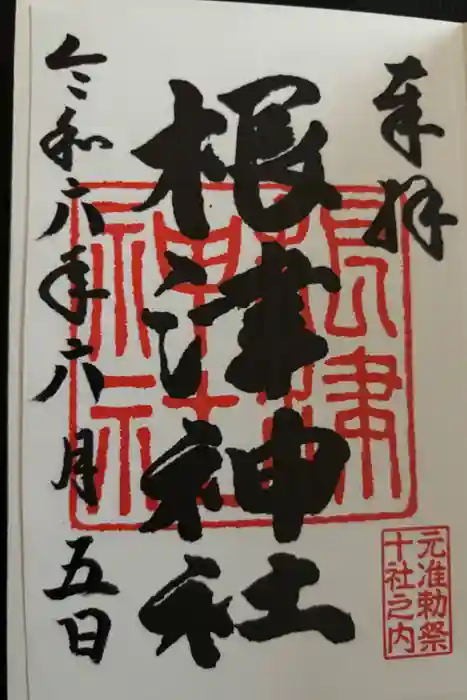 奉拝
根津神社
令和六年六月五日
根津
神社
元准勅祭
十社之内